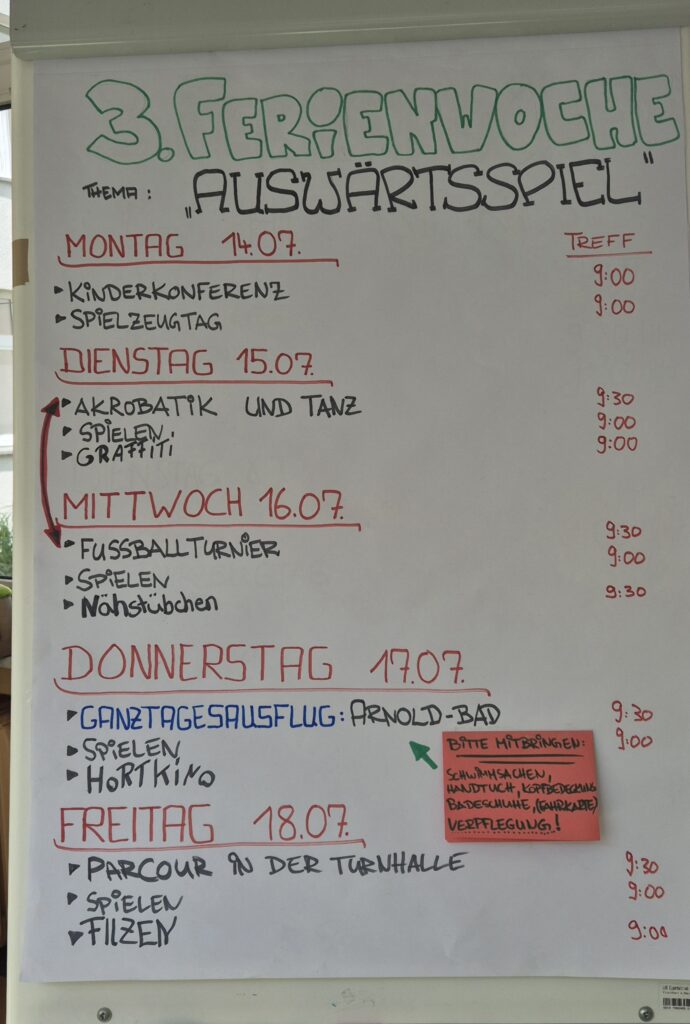 3. FERIENWOCHE
THEMA: „AUSWÄRTSSPIEL"
MONTAG 14.07. TREFF
▸ KINDERKONFERENZ 9:00
▸ SPIELZEUGTAG 9:00
DIENSTAG 15.07.
▸ AKROBATIK UND TANZ 9:30
▸ SPIELEN 9:00
▸ GRAFFITI 9:00
MITTWOCH 16.07.
▸ FUSSBALLTURNIER 9:30
▸ SPIELEN 9:00
▸ Nähstübchen 9:30
DONNERSTAG 17.07.
▸ GANZTAGESAUSFLUG: ARNOLD-BAD 9:30
▸ SPIELEN 9:00
▸ HORTKINO
BITTE MITBRINGEN:
SCHWIMMSACHEN,
HANDTUCH, KOPFBEDECKUNG
BADESCHUHE, (FAHRKARTE)
VERPFLEGUNG!
FREITAG 18.07.
▸ PARCOUR IN DER TURNHALLE 9:30
▸ SPIELEN 9:00
▸ FILZEN 9:00